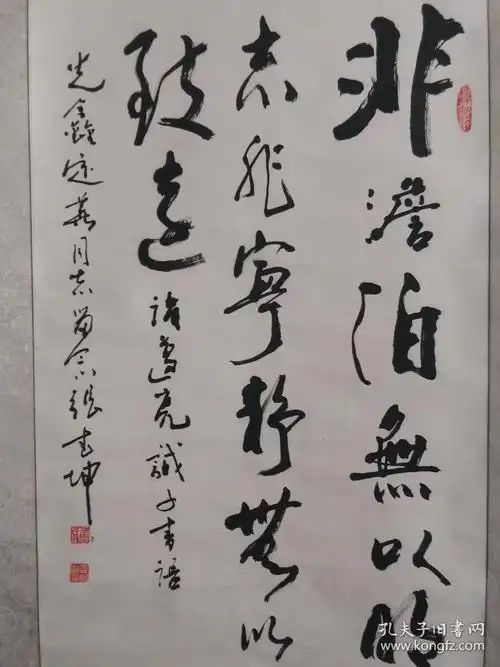 非澹泊無以明
志非寧静無以
致遠
諸葛亮誡子書語
光鑫定燕同志留念張書坤
孔夫子旧书网
www.kongfz.com